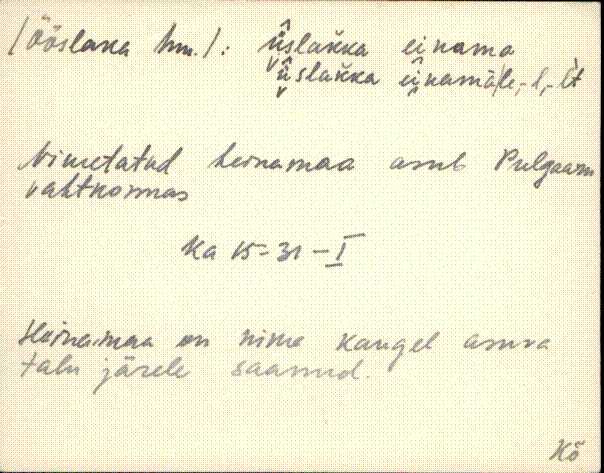 /Ööslaka hm./: üslakka einama
üslakka einamäle, -l, -lt
Nimetatud heinamaa asub Pulgaaru
vahtkonnas
Ka 15-31-I
Heinamaa on nime kaugel asuva
talu järele saanud.
Kõ